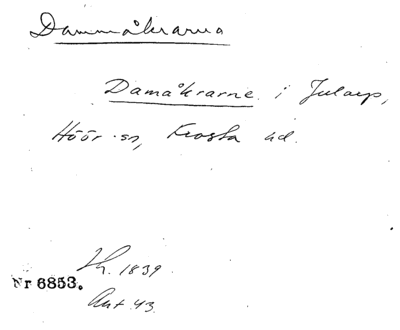 Dammåkrarna
Damåkrarne i Jularp,
Höör sn, Frosta hd.
Lh. 1839
Nr 6853.
Akt 43